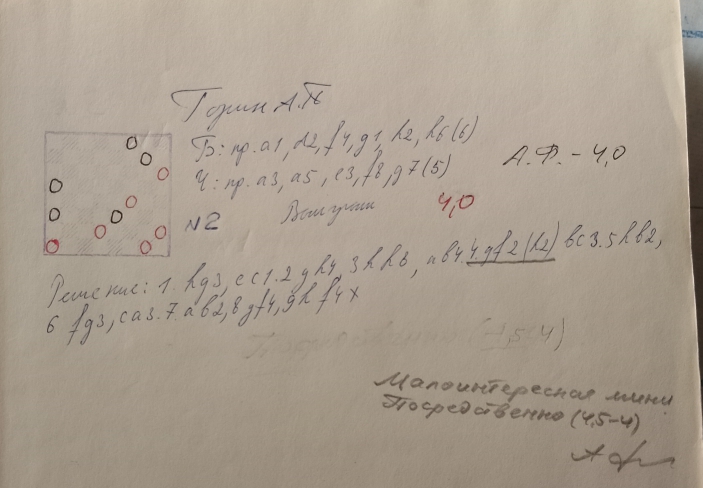 Горин А.
Б: пр. a1, d2, f4, g1, h2, h6 (6)
Ч: пр. a3, a5, e3, f8, g7 (5)
А.Ф. - 4,0
Выигрыш 4,0
№2
Решение: 1. hg3, ec1. 2 gh4 3 hh6, ab4. 4. gf2 (h2) bc3. 5 hb2,
6 fg3, ca3. 7. ab2, 8 gf4, gh f4x
Посредственно (4,5-4)
Малоинтересная мини
Посредственно (4,5-4)